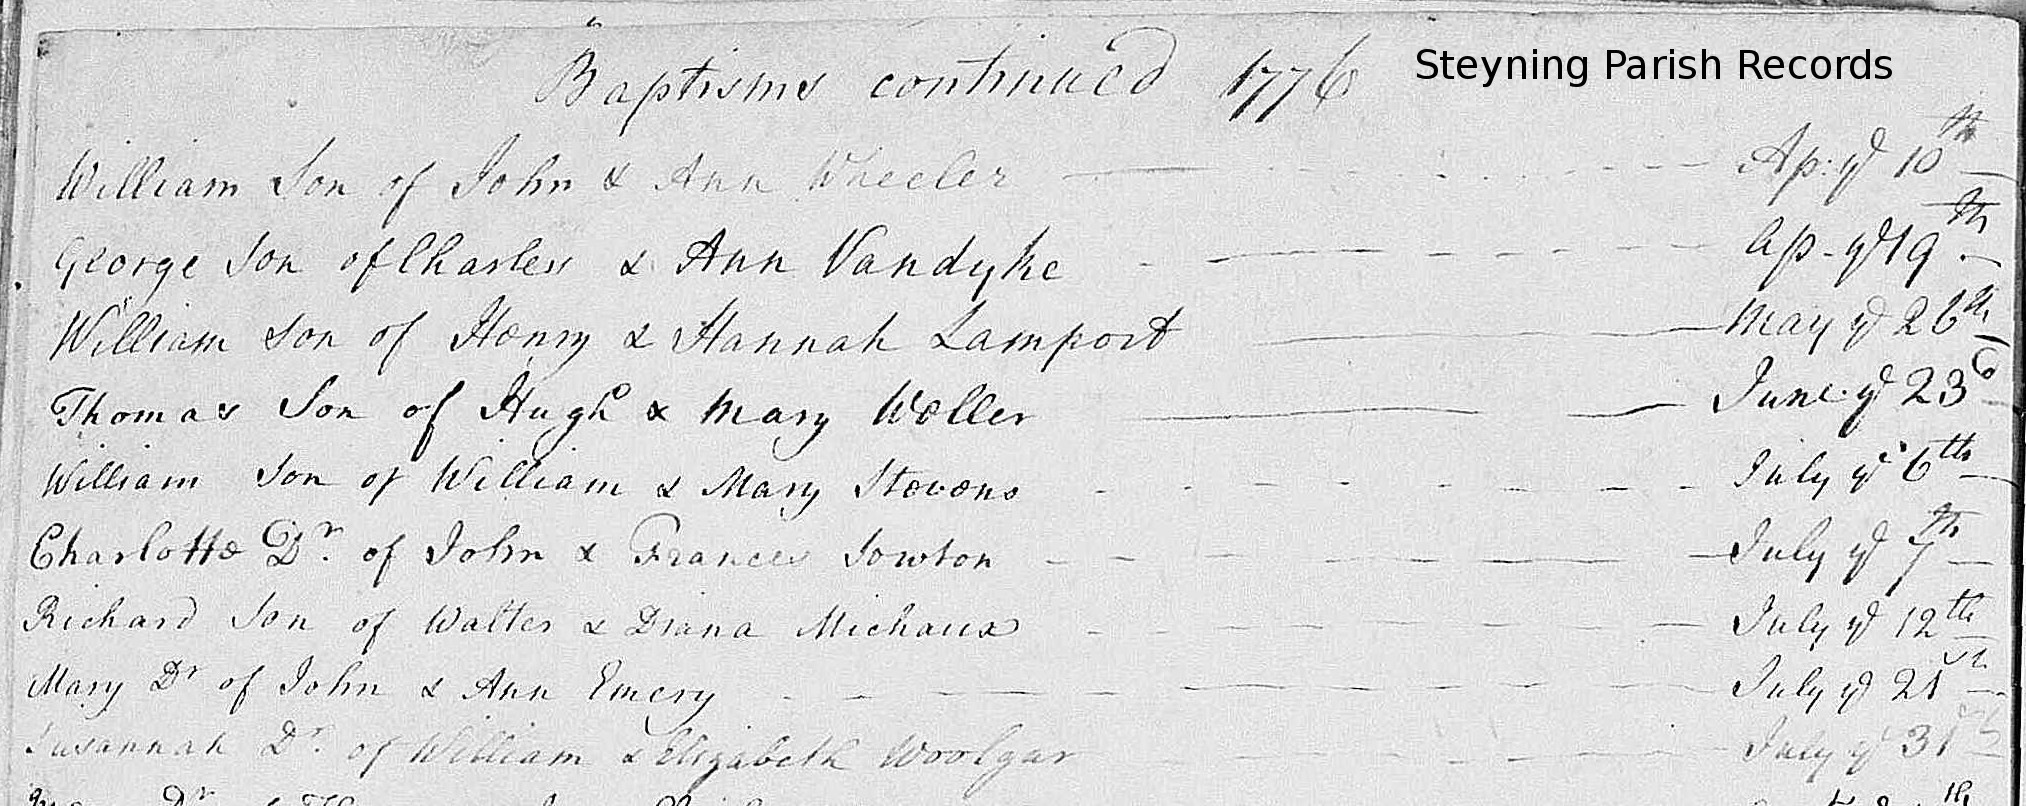 Baptisms continued 1776 Steyning Parish Records
William Son of John & Ann Wheeler Ap: yᵉ 10th
George Son of Charles & Ann Vandyke Ap - yᵉ 19th
William Son of Henry & Hannah Lamport May yᵉ 26th
Thomas Son of Hugh & Mary Weller June yᵉ 23d
William Son of William & Mary Stevens July yᵉ 6th
Charlotte Dr. of John & Frances Sowton July yᵉ 7th
Richard Son of Walter & Diana Michaux July yᵉ 12th
Mary Dr of John & Ann Emery July yᵉ 21st
Susannah Dr. of William & Elizabeth Woolgar July yᵉ 31st